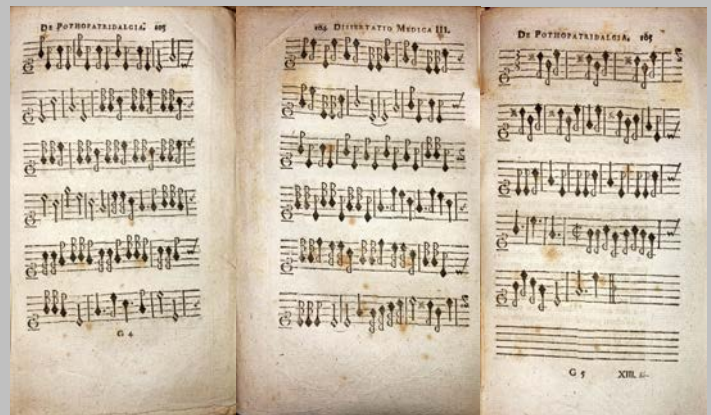 DE POTHOPATRIDALGIA. 103
G 4
104 DISSERTATIO MEDICA III.
DE POTHOPATRIDALGIA. 105
G 5 XIII.